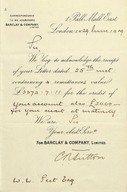 CORRESPONDENCE
TO BE ADDRESSED
BARCLAY & COMPANY
LIMITED
1 Pall Mall East,
London, June 1909
Sir,
We beg to acknowledge the receipt
of your Letter dated 25th inst
containing a remittance value
£3072-7-11 for the credit of
your account also £
for your
We are Sir
Your obed. Serv.
FOR BARCLAY & COMPANY, LIMITED
W. W. Peet Esq